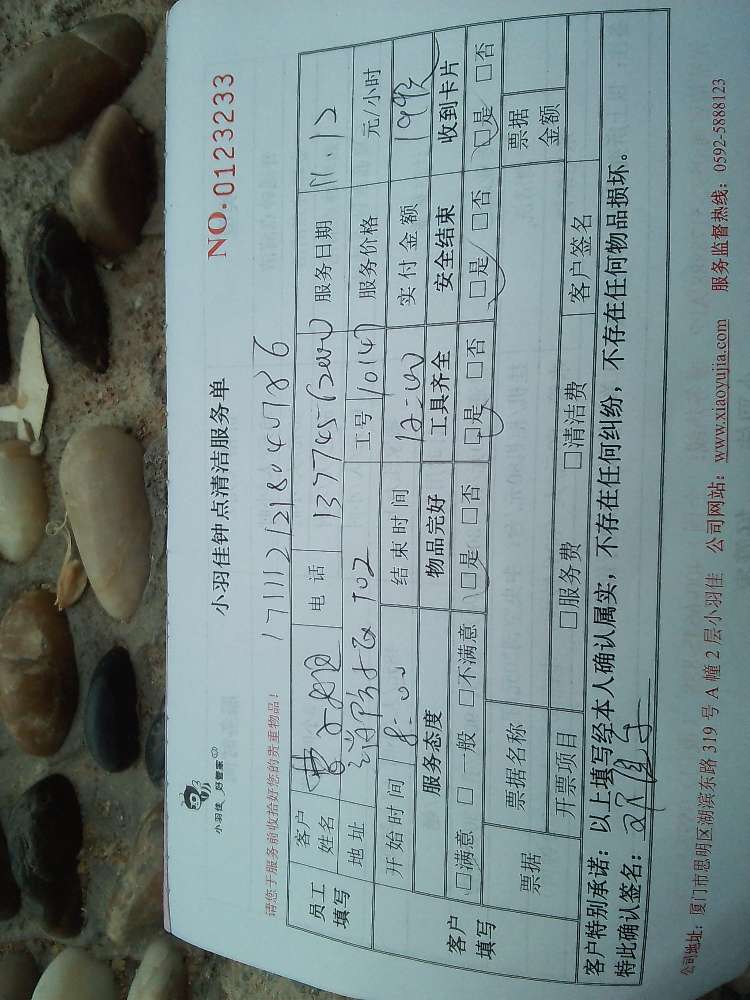 小羽佳 好管家
小羽佳钟点清洁服务单
NO. 0123233
请您于服务前收拾好您的贵重物品！
1711121218040786
员工填写 客户姓名 电话 服务日期 11.12
地址 702 工号 10147 服务价格 元/小时
开始时间 8:00 结束时间 12:00 实付金额 199元
客户填写 服务态度 物品完好 工具齐全 安全结束 收到卡片
□满意 □一般 □不满意 □是 □否 □是 □否 □是 □否 □是 □否
票据 票据名称 票据金额
开票项目 □服务费 □清洁费 客户签名
客户特别承诺：以上填写经本人确认属实，不存在任何纠纷，不存在任何物品损坏。
特此确认签名：
公司地址：厦门市思明区湖滨东路 319 号 A 幢 2 层小羽佳 公司网站：www.xiaoyujia.com 服务监督热线：0592-5888123